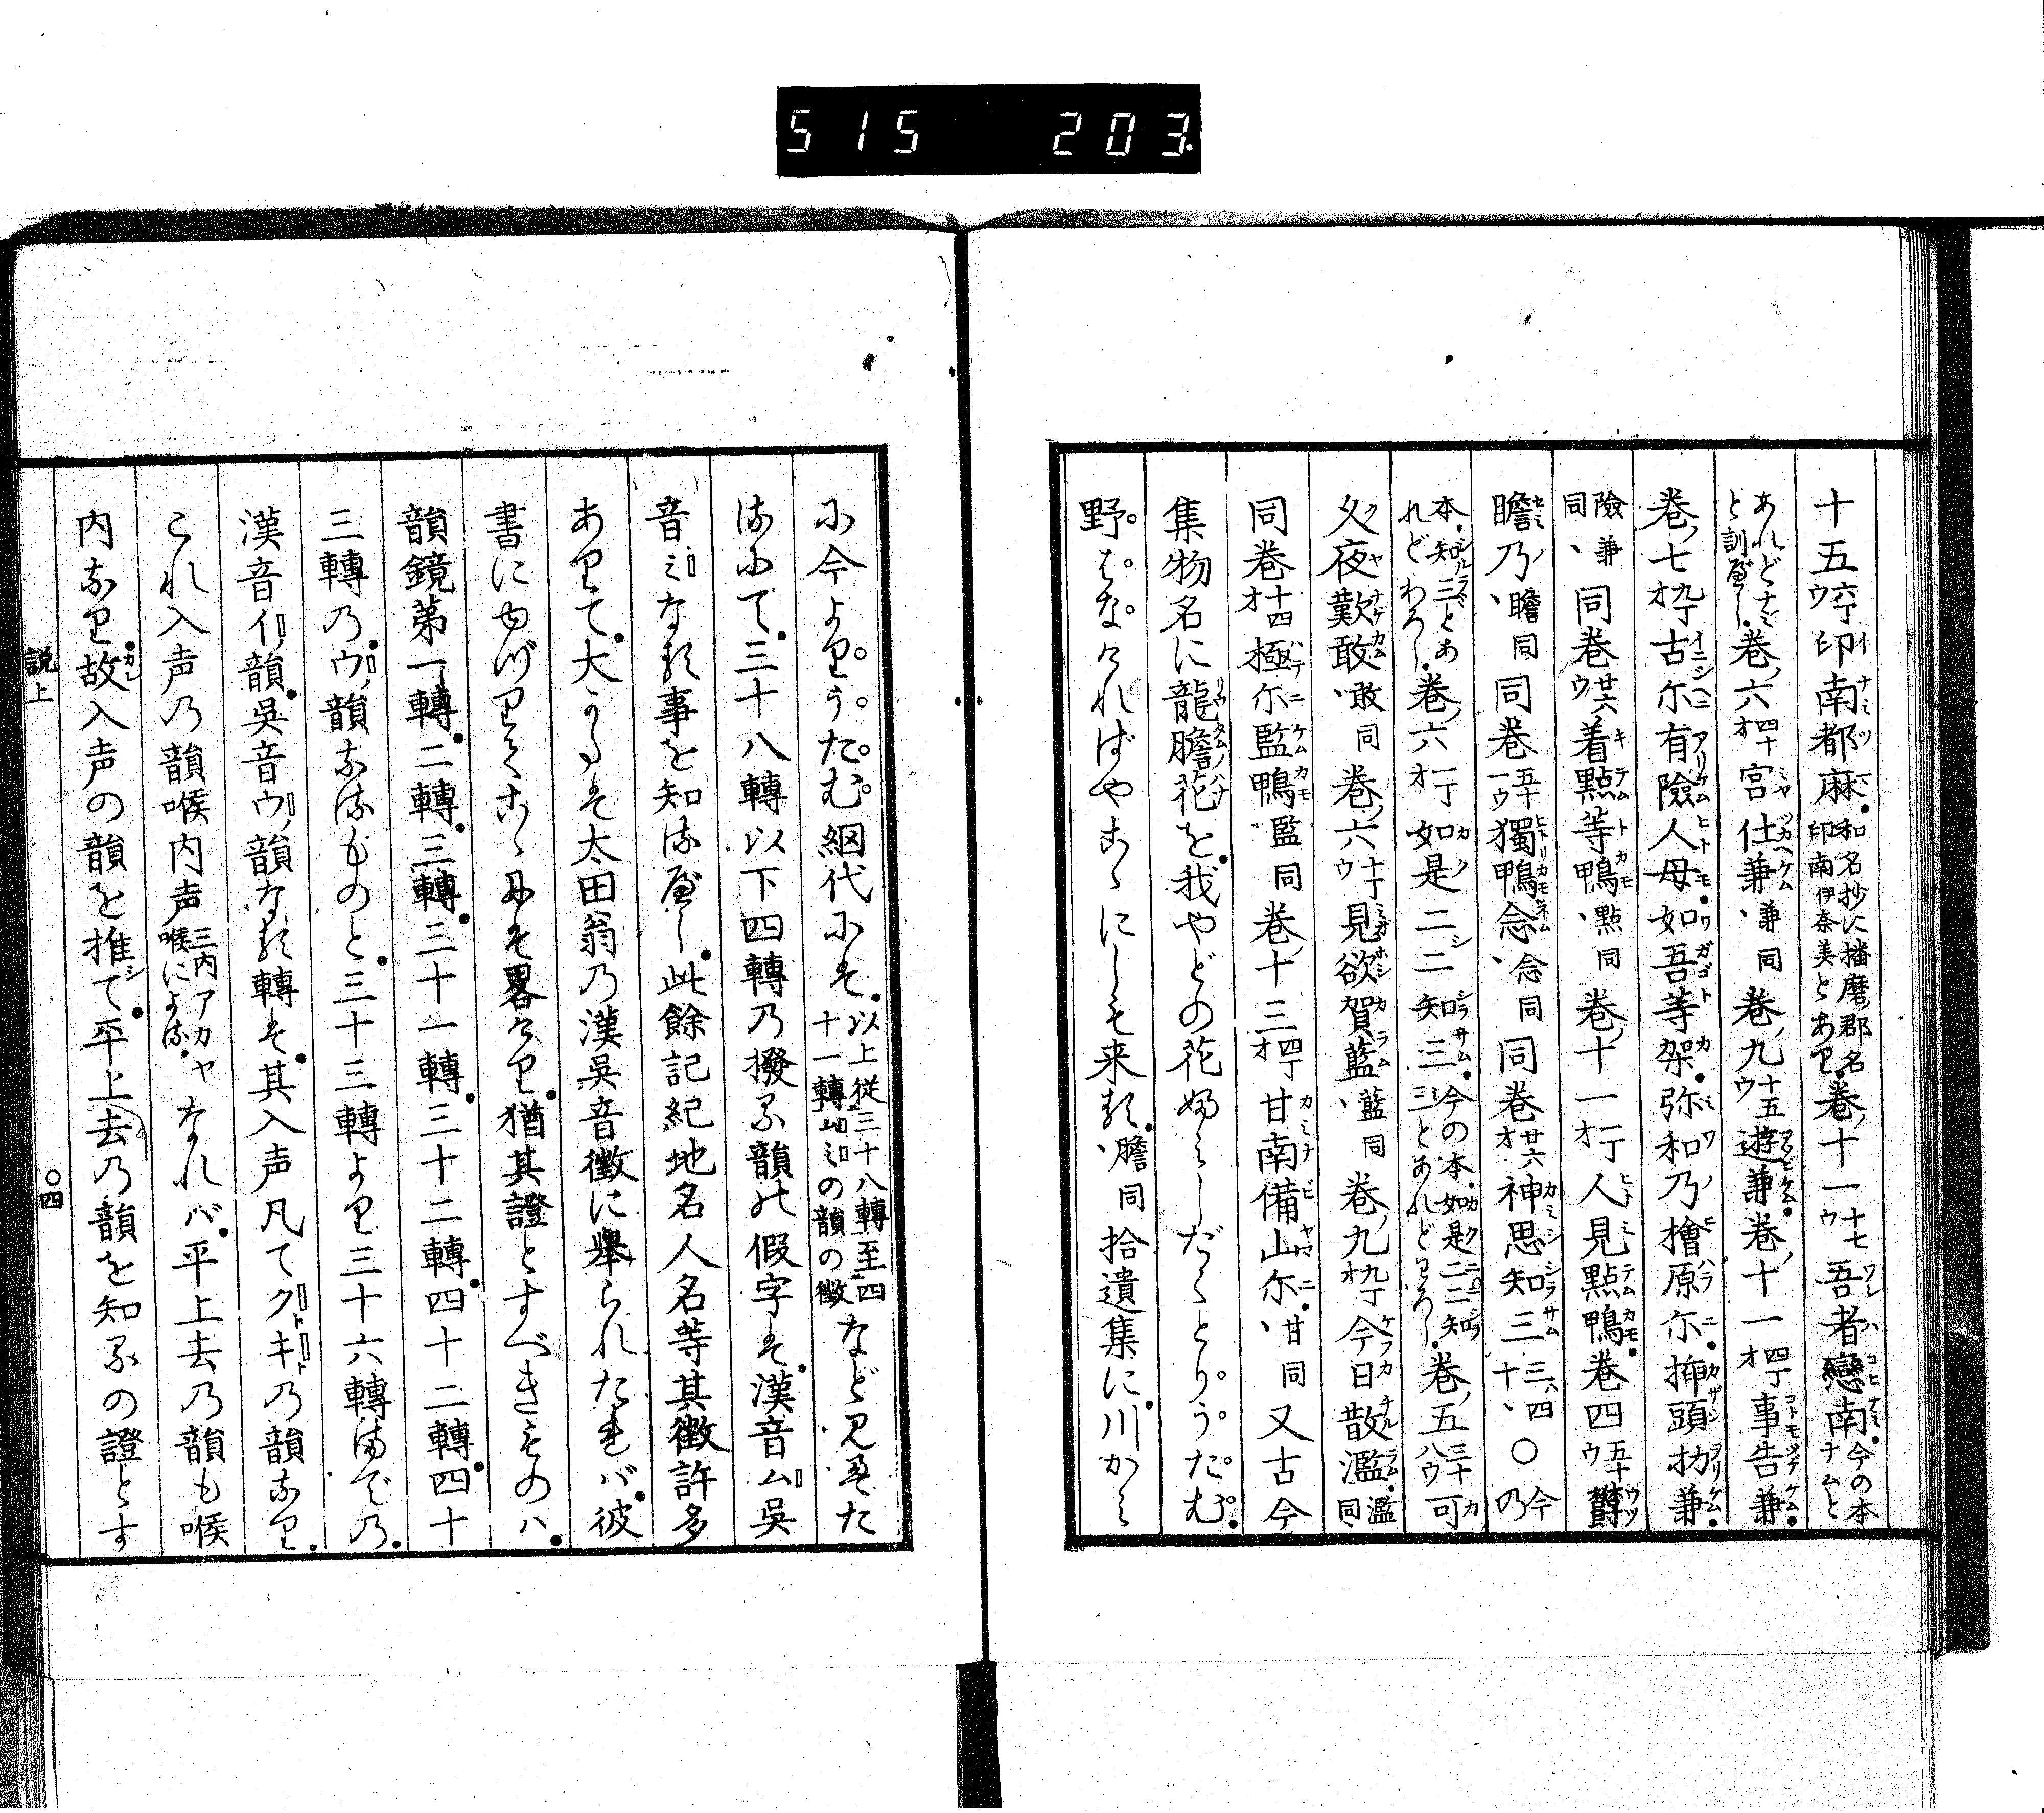 515 203
十五六丁ウ印南都麻和名抄に播磨郡名印南伊奈美とあり巻ノ十一十七ウ吾者戀南今の本ナムと
あれどナミと訓べし巻ノ六四十オ宮仕兼、兼同巻ノ九十五ウ遊兼巻ノ十一四丁オ事告兼
巻ノ七九丁オ古尓有險人母如吾等架弥和乃檜原尓挿頭折兼
險兼同、同巻廿六ウ着點等鴨、點同巻ノ十一一丁オ人見點鴨巻四五十ウ欝
瞻乃、瞻同同巻五十一ウ獨鴨念、念同同巻廿六オ神思知三三、四十、〇今乃
本知三とあれどわろし巻ノ六一丁オ如是二二知三今の本如是二二知三とあれどわろし巻ノ五三十八ウ可
久夜歎敢、敢同巻ノ六十丁ウ見欲賀藍、藍同巻ノ九九丁オ今日散濫濫同、
同巻十四オ極尓監鴨監同巻ノ十三四丁オ甘南備山尓、甘同又古今
集物名に龍膽花を我やどの花ふみしだくとりうたむ
野はなければやこゝにしも来る、膽同拾遺集に川かみ
に今よりうたむ網代には以上従三十八轉至四十一轉ムミの韻の徴など見えた
るにて三十八轉以下四轉乃撥る韻の假字は漢音ム吳
音ミなる事を知るべし此餘記紀地名人名等其徴許多
ありて大かたは太田翁乃漢吳音徴に舉られたれバ彼
書にゆづりてこゝには畧けり猶其證とすべきものハ
韻鏡第一轉二轉三轉三十一轉三十二轉四十二轉四十
三轉乃ウノ韻なるものと三十三轉より三十六轉まで乃
漢音イノ韻吳音ウノ韻なる轉は其入声凡てクトキト乃韻なり
これ入声乃韻喉内声三内アカヤ喉による なれバ平上去乃韻も喉
内なり故入声の韻を推て平上去乃韻を知るの證とす
説上 〇四